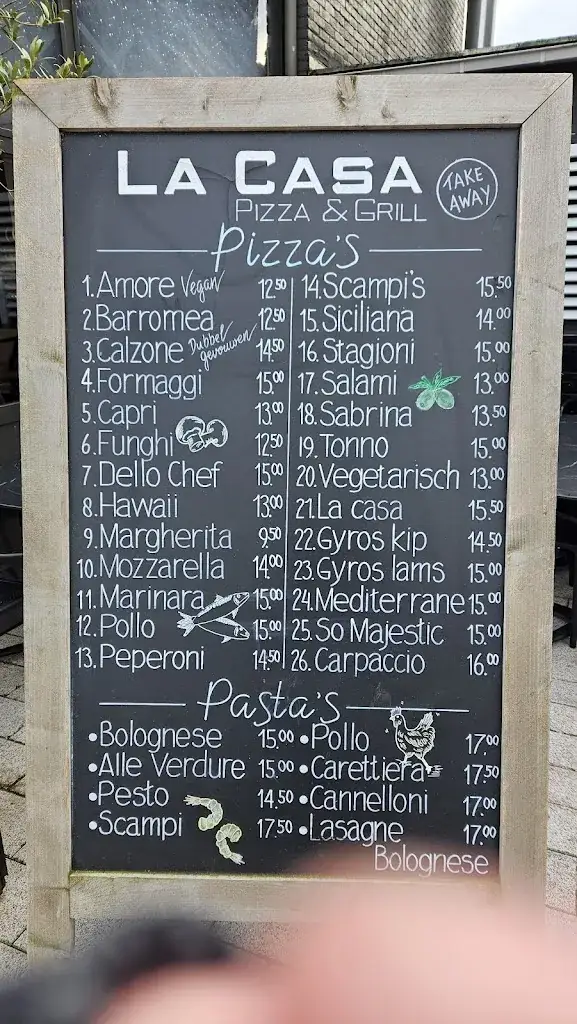 LA CASA
PIZZA & GRILL
TAKE AWAY
Pizza's
1. Amore Vegan 12.50
2. Barromea 12.50
3. Calzone Dubbel gevouwen 14.50
4. Formaggi 15.00
5. Capri 13.00
6. Funghi 12.50
7. Dello Chef 15.00
8. Hawaii 13.00
9. Margherita 9.50
10. Mozzarella 14.00
11. Marinara 15.00
12. Pollo 15.00
13. Peperoni 14.50
14. Scampi's 15.50
15. Siciliana 14.00
16. Stagioni 15.00
17. Salami 13.00
18. Sabrina 13.50
19. Tonno 15.00
20. Vegetarisch 13.00
21. La casa 15.50
22. Gyros kip 14.50
23. Gyros lams 15.00
24. Mediterrane 15.00
25. So Majestic 15.00
26. Carpaccio 16.00
Pasta's
•Bolognese 15.00
•Alle Verdure 15.00
•Pesto 14.50
•Scampi 17.50
•Pollo 17.00
•Carettiera 17.50
•Cannelloni 17.00
•Lasagne 17.00
Bolognese